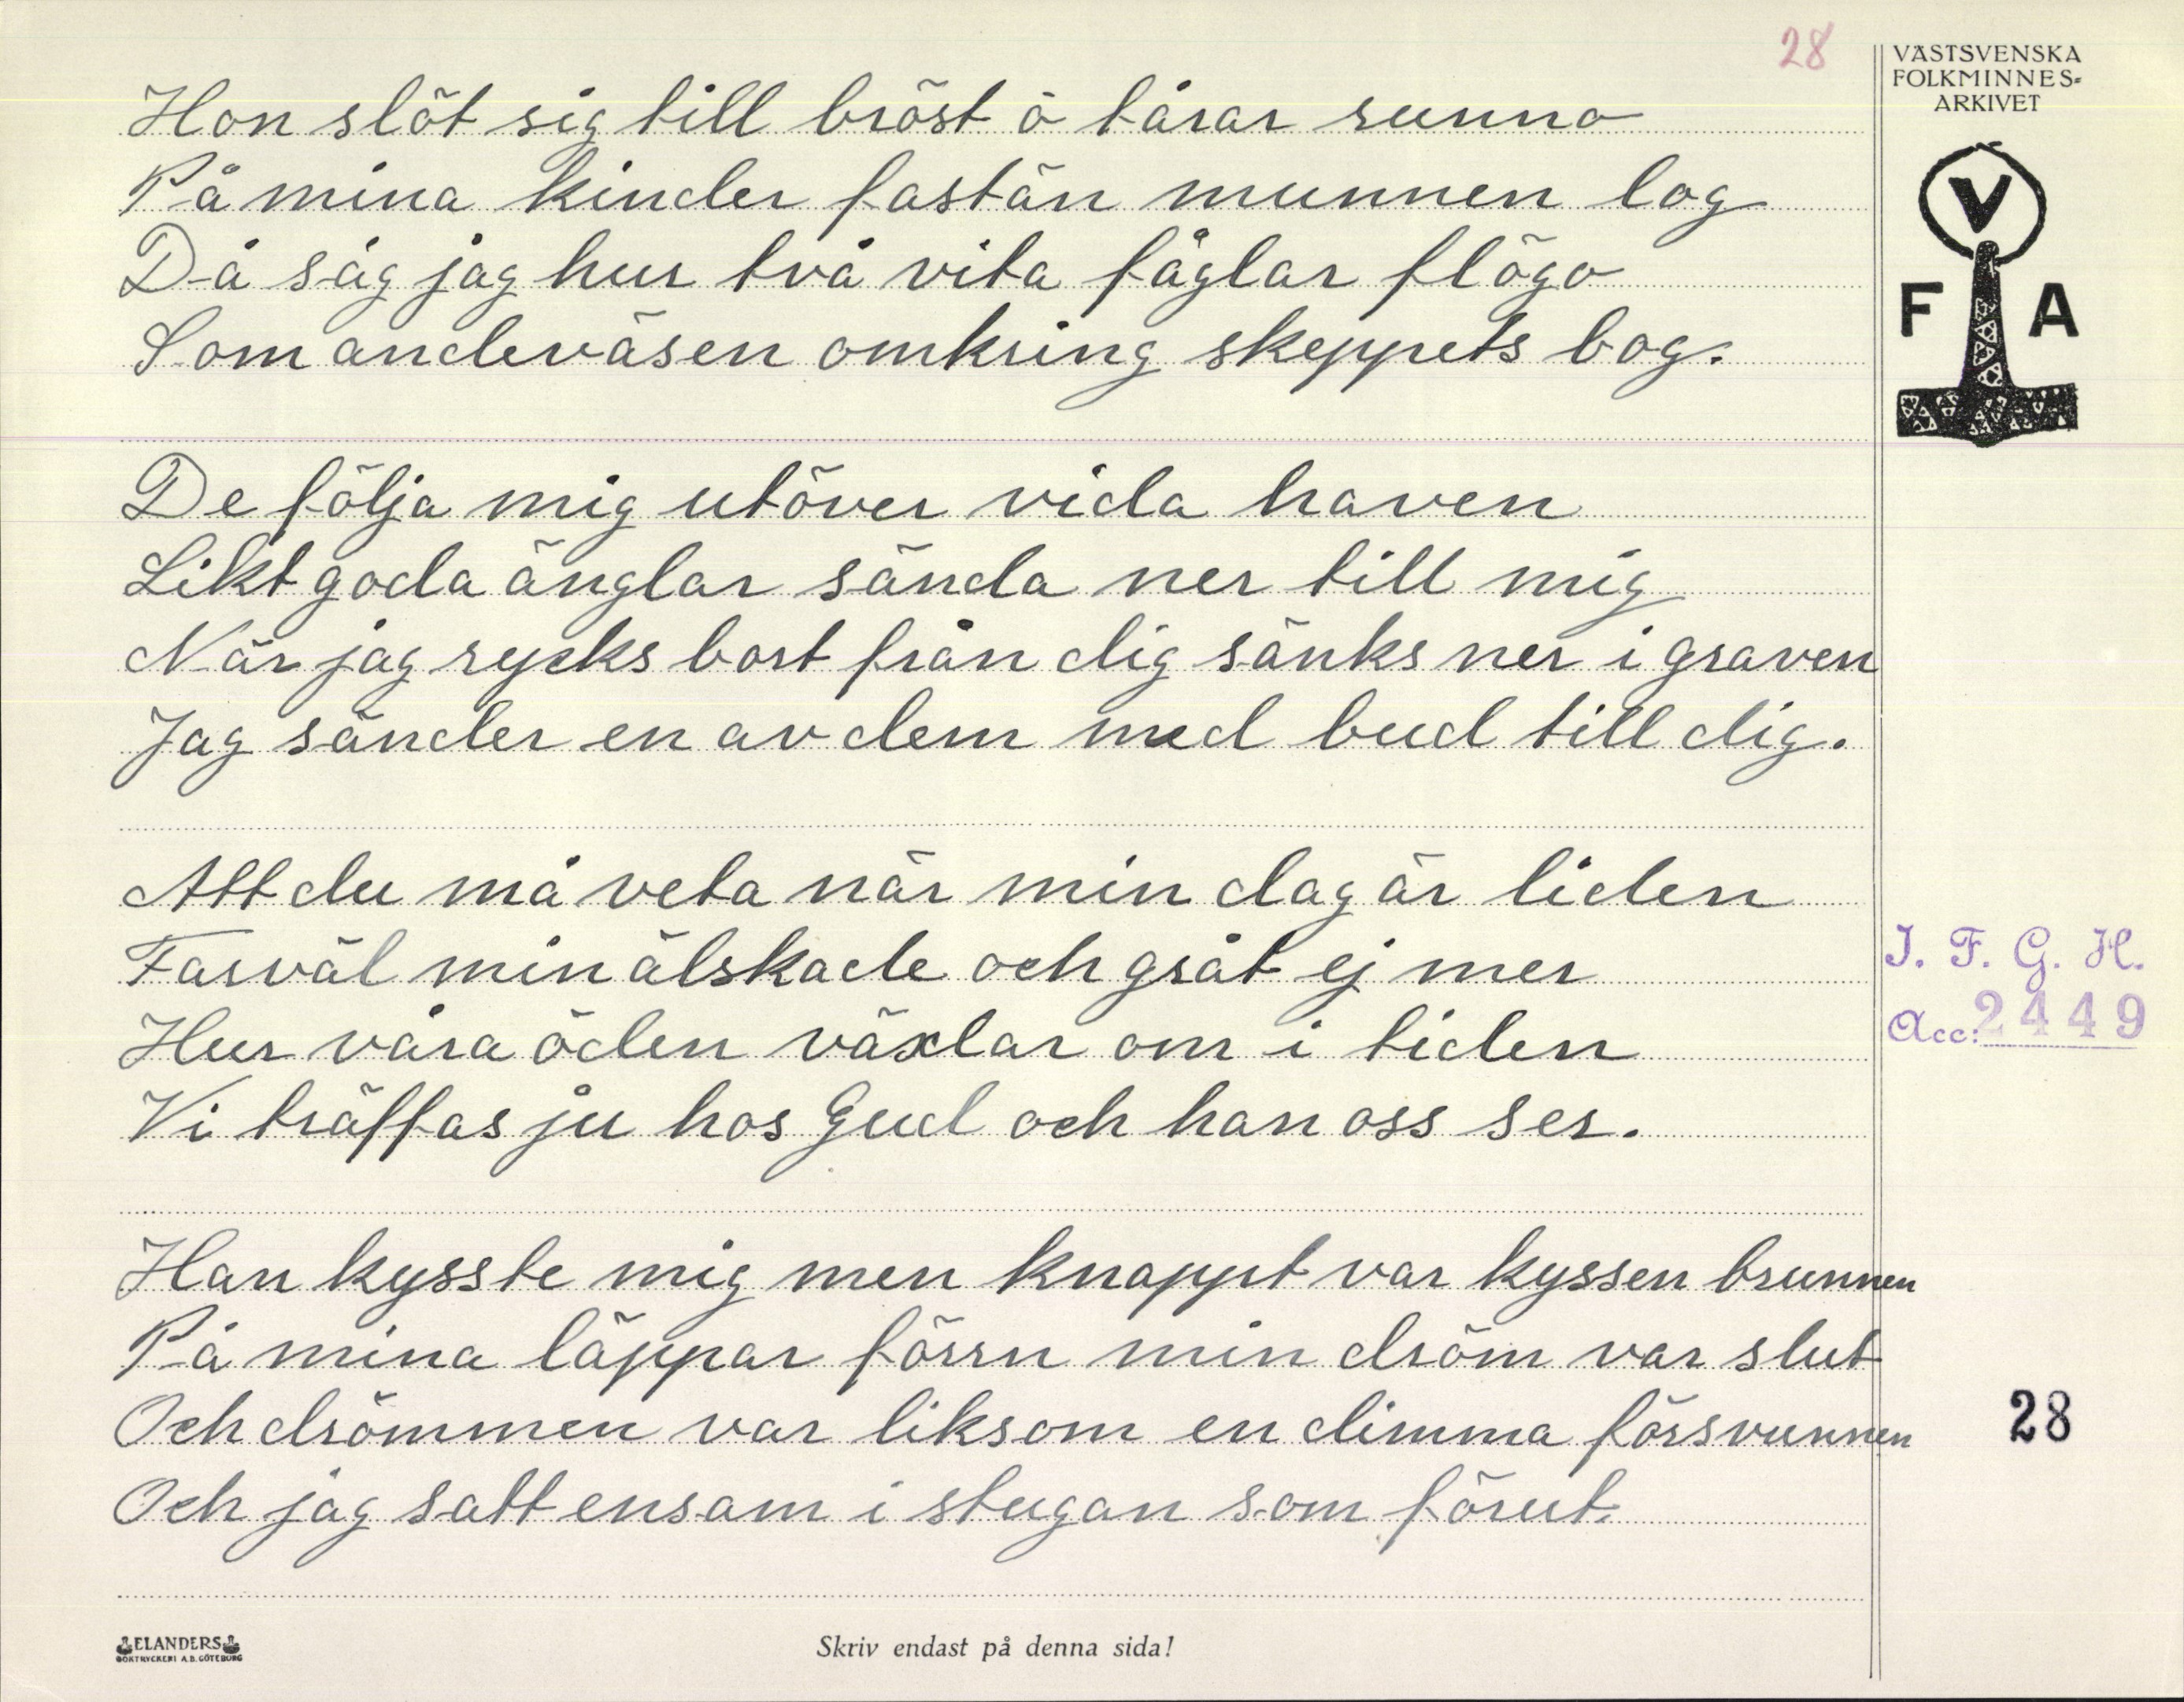 28
VÄSTSVENSKA
FOLKMINNES=
ARKIVET
V
F A
Hon slöt sig till bröst ȯ tårar runno
På mina kinder fastän munnen log
Då såg jag hur två vita fåglar flögo
Som andeväsen omkring skeppets bog.
De följa mig utöver vida haven
Likt goda änglar sända ner till mig
När jag rycks bort från dig sänks ner i graven
Jag sänder en av dem med bud till dig.
Att du må veta när min dag är liden
Farväl min älskade och gråt ej mer
Hur våra öden växlar om i tiden
Vi träffas ju hos Gud och han oss ser.
I. F. G. H.
Acc: 2449
Han kysste mig men knappt var kyssen brunnen
På mina läppar förrn min dröm var slut
Och drömmen var liksom en dimma försvunnen
Och jag satt ensam i stugan som förut.
28
ELANDERS
BOKTRYCKERI A.B. GÖTEBORG
Skriv endast på denna sida!